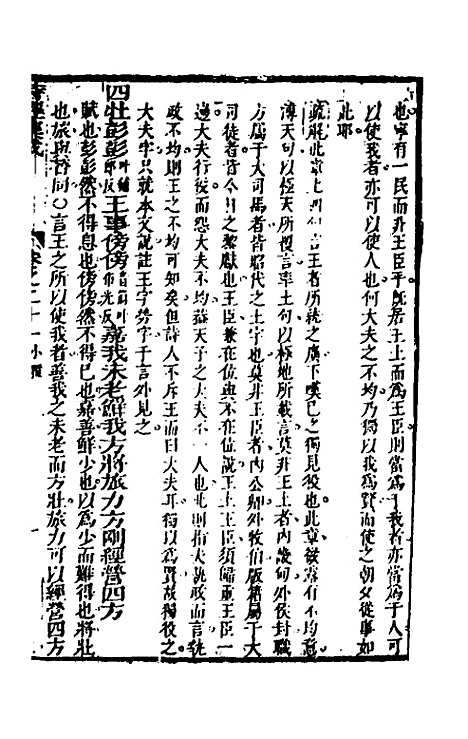 也寧有一民而非王臣乎旣居王土而爲王臣則當爲于我者亦當爲于人可
以使我者亦可以使人也何大夫之不均乃獨以我爲賢而使之朝夕從事如
此耶
疏解此章上四句言王者所統之廣下嘆已之獨見役也此章微露有不均意
溥天句以極天所覆言率土句以極地所載言莫非王土者內畿句外侯封職
方屬于大司馬者皆昭代之土宇也莫非王臣者內公卿外牧伯版籍屬于大
司徒者皆今日之黎獻也王臣兼在位與不在位說王土王臣須歸重王臣一
邊大夫行役而怨大夫不均蓋天子之大夫不一人也此則指大執政而言執
政不均則王之不均可知矣但詩人不斥王而曰大夫耳獨以爲賢故獨役之
大夫字只就本文說註王字勞字于言外見之
四牡彭彭王事傍傍嘉我未老鮮我方將旅力方剛經營四方
賦也彭彭然不得息也傍傍然不得已也嘉善鮮少也以爲少而難得也將壯
也旅與膂同○言王之所以使我者善我之未老而方壯旅力可以經營四方